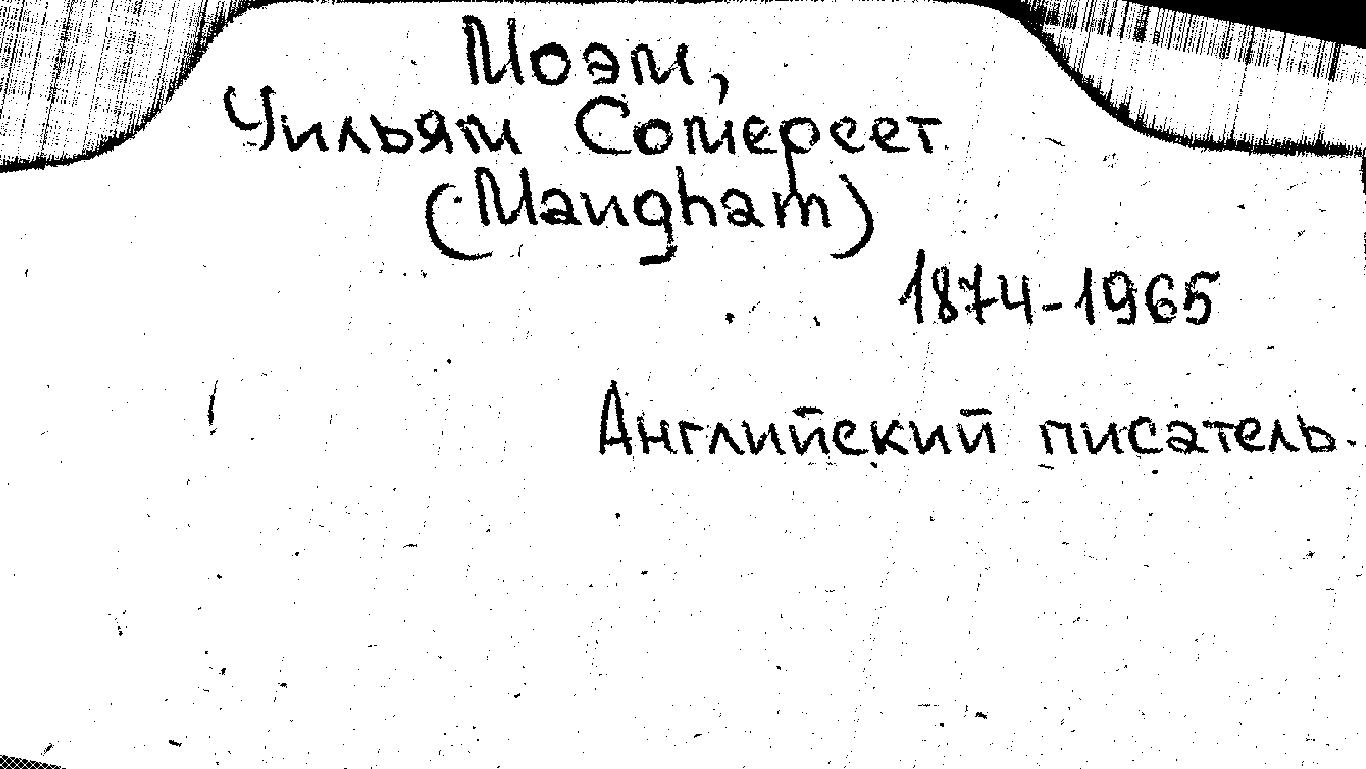 Моэм,
Уильям Сомерсет
(Maugham)
1874-1965
Английский писатель.